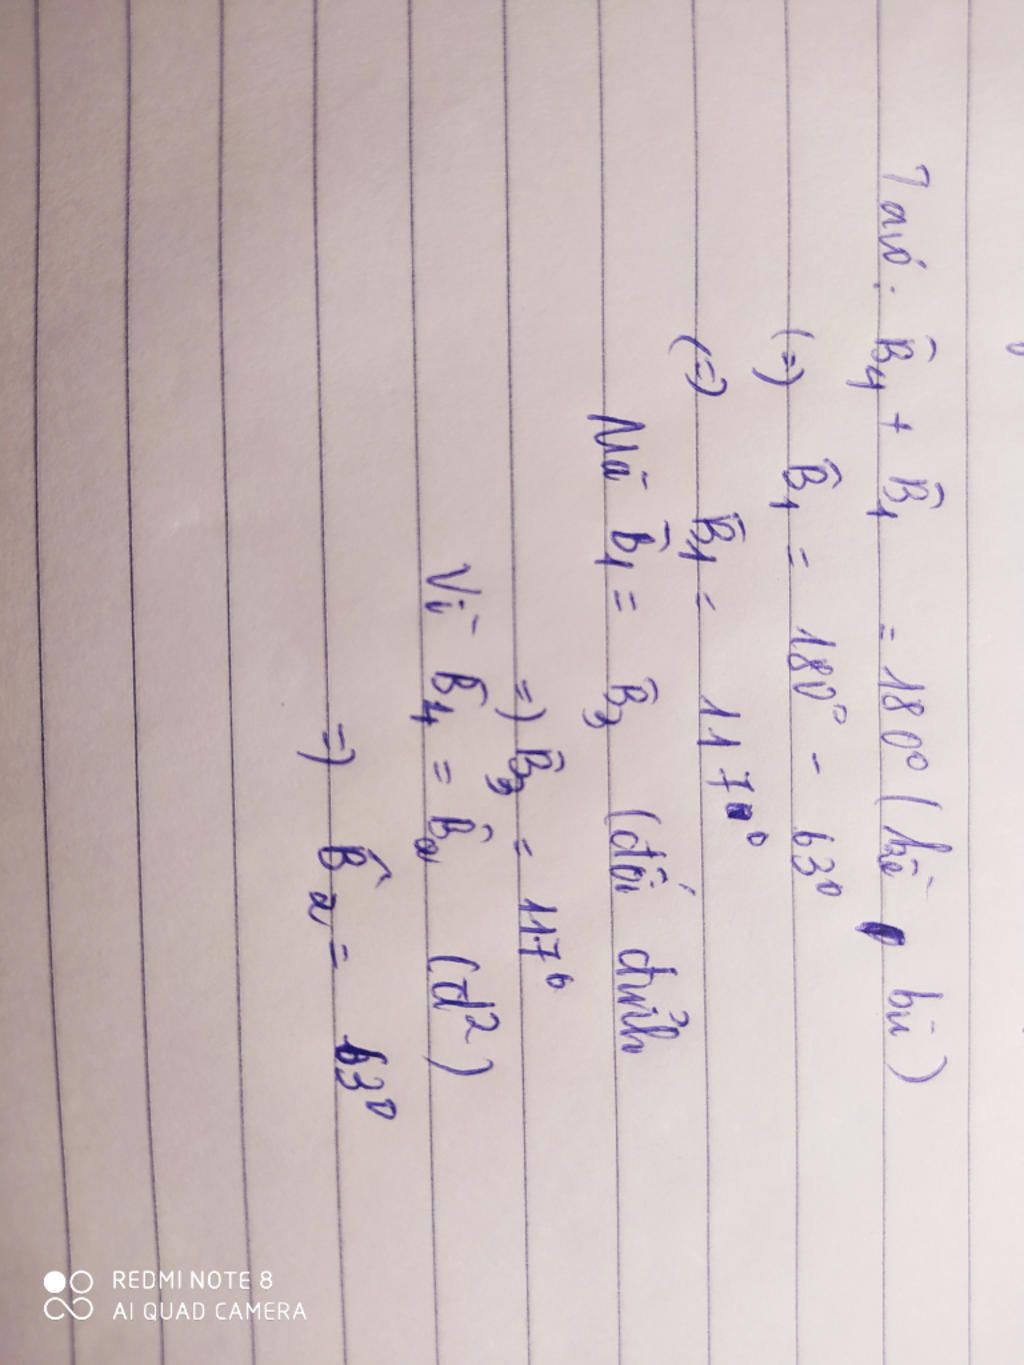 Ta có: B̂4 + B̂1 = 180° (kề bù)
(=) B̂1 = 180° - 63°
(=) B̂1 = 117°
Mà B̂1 = B̂3 (đối đỉnh
=) B̂3 = 117°
Vì B̂4 = B̂2 (đ2)
=) B̂2 = 63°
REDMI NOTE 8
AI QUAD CAMERA